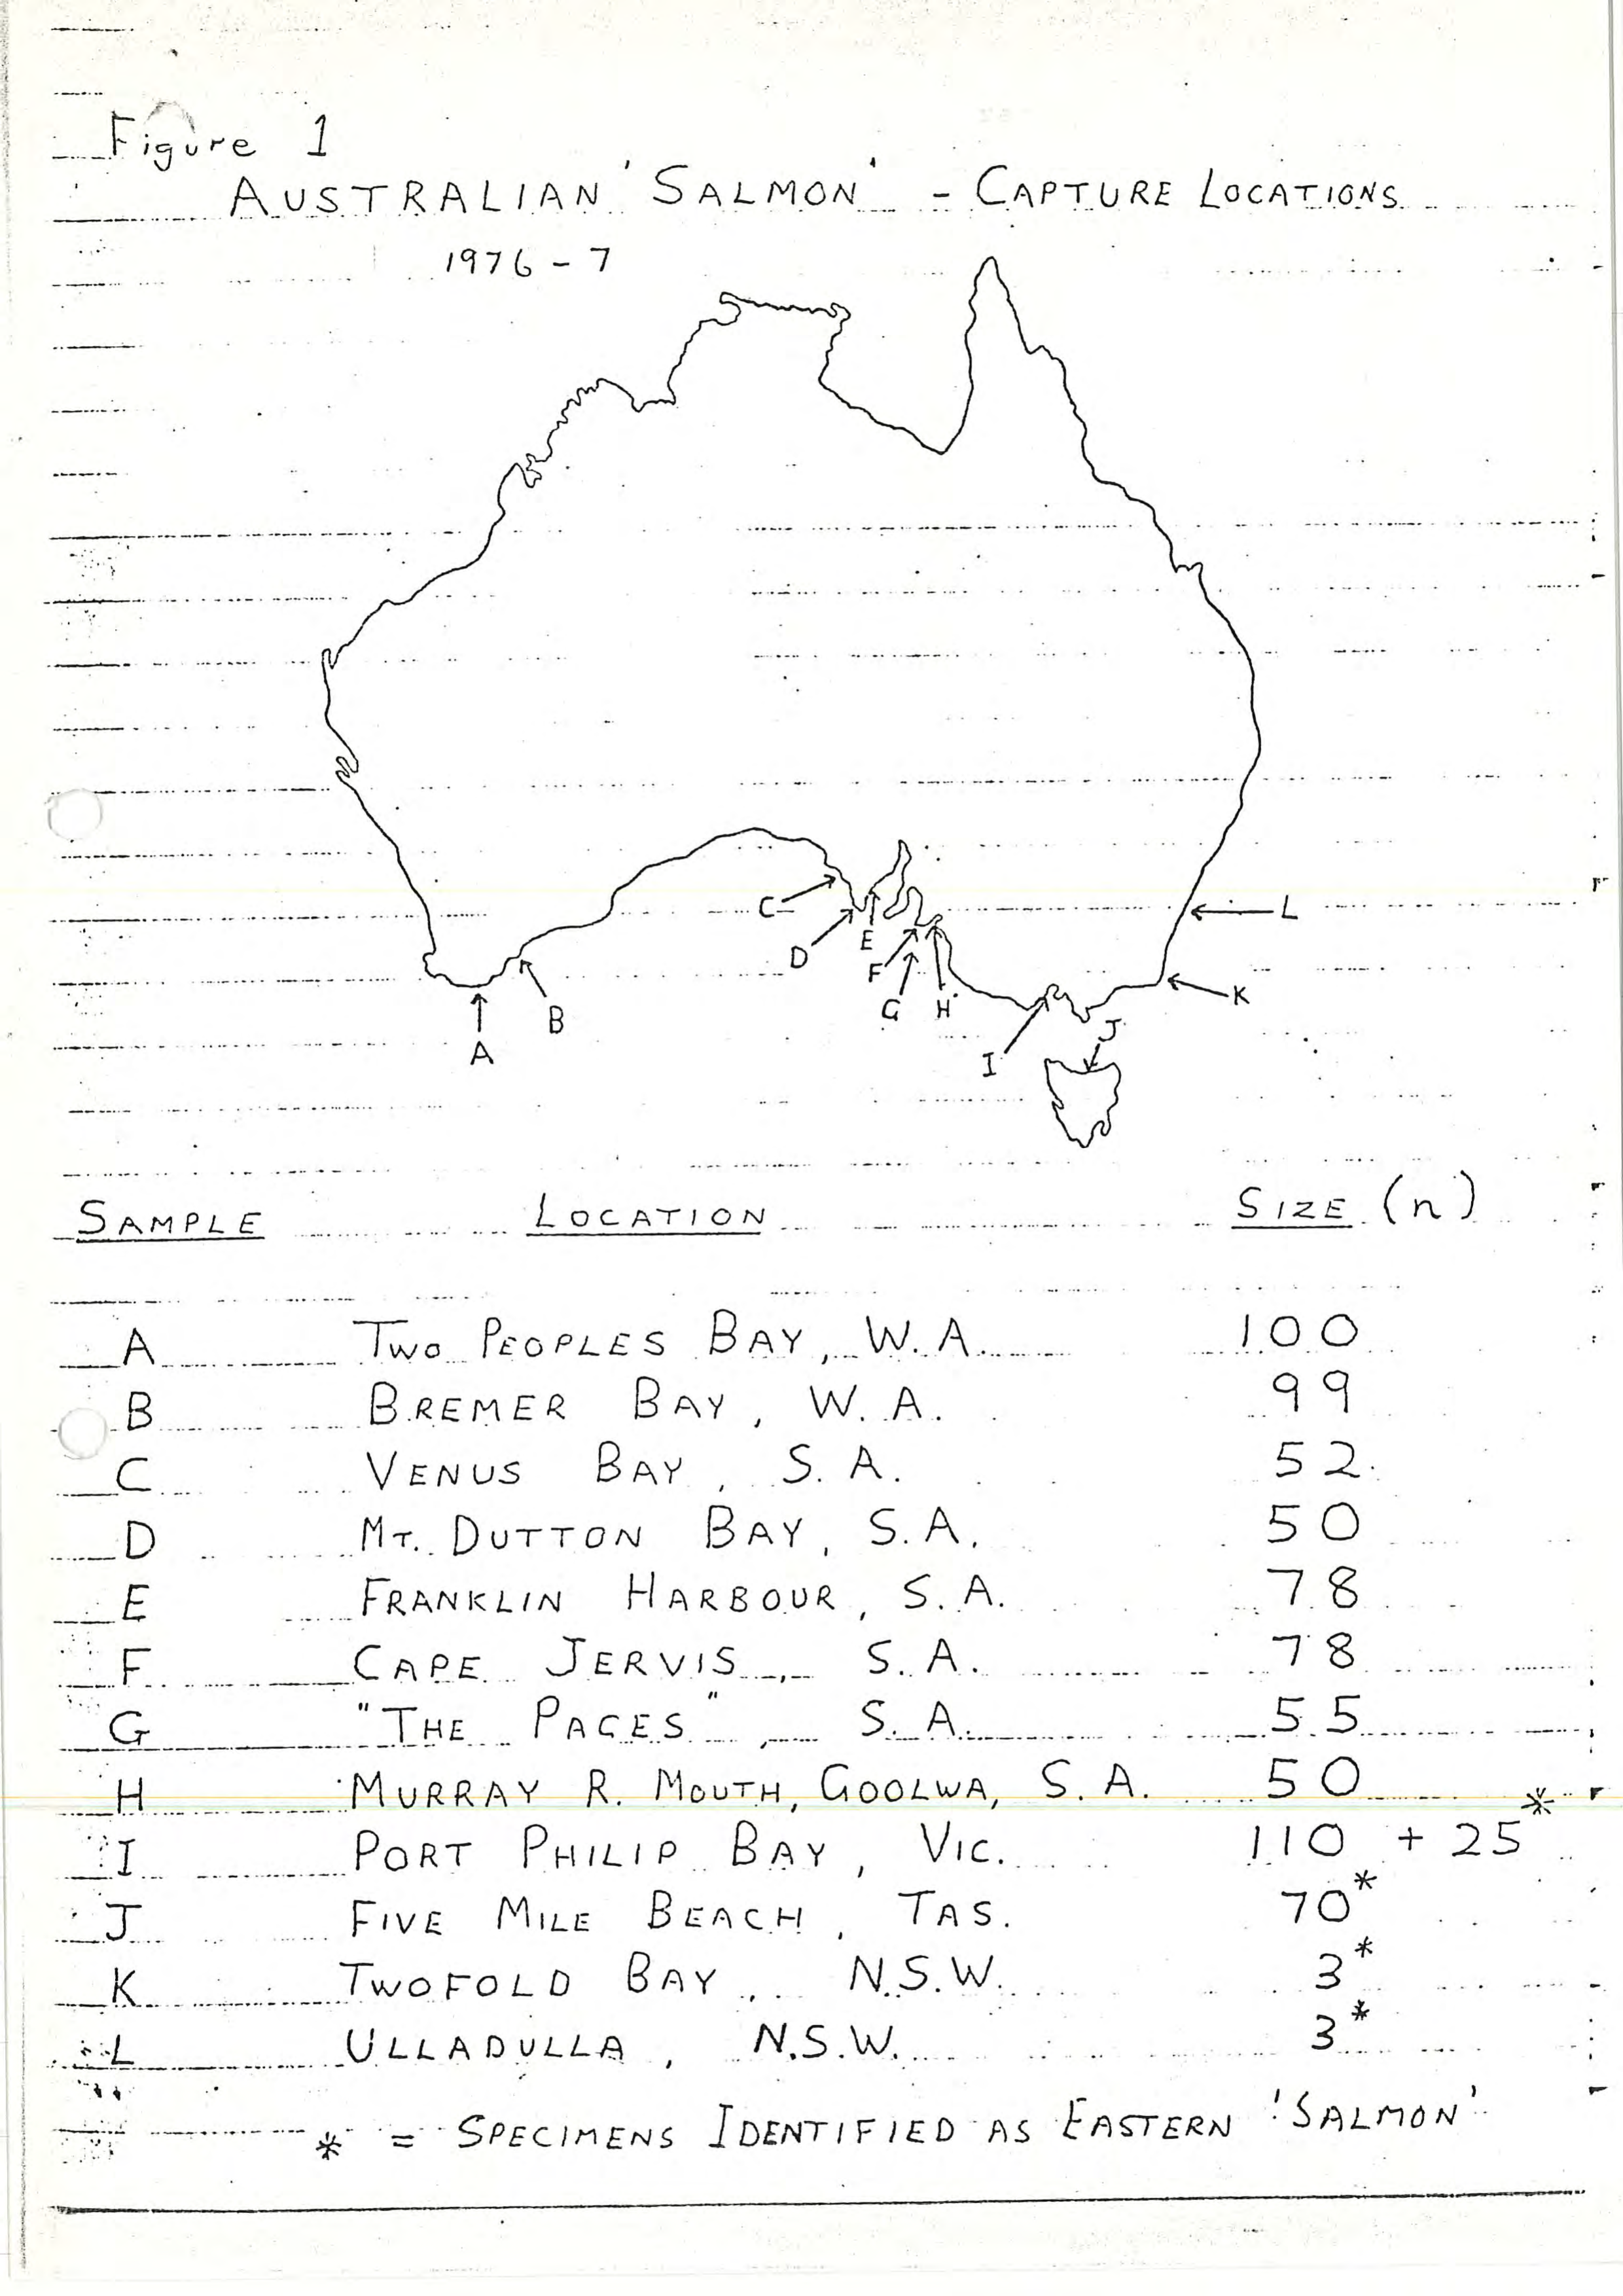 Figure 1
AUSTRALIAN 'SALMON' - CAPTURE LOCATIONS
1976 - 7
C
D
E
F
G
H
L
K
A
B
I
J
SAMPLE LOCATION SIZE (n)
A TWO PEOPLES BAY, W.A. 100
B BREMER BAY, W.A. 99
C VENUS BAY, S.A. 52
D MT. DUTTON BAY, S.A. 50
E FRANKLIN HARBOUR, S.A. 78
F CAPE JERVIS, S.A. 78
G "THE PAGES", S.A. 55
H MURRAY R. MOUTH, GOOLWA, S.A. 50
I PORT PHILIP BAY, VIC. 110 + 25*
J FIVE MILE BEACH, TAS. 70*
K TWOFOLD BAY, N.S.W. 3*
L ULLADULLA, N.S.W. 3*
* = SPECIMENS IDENTIFIED AS EASTERN 'SALMON'